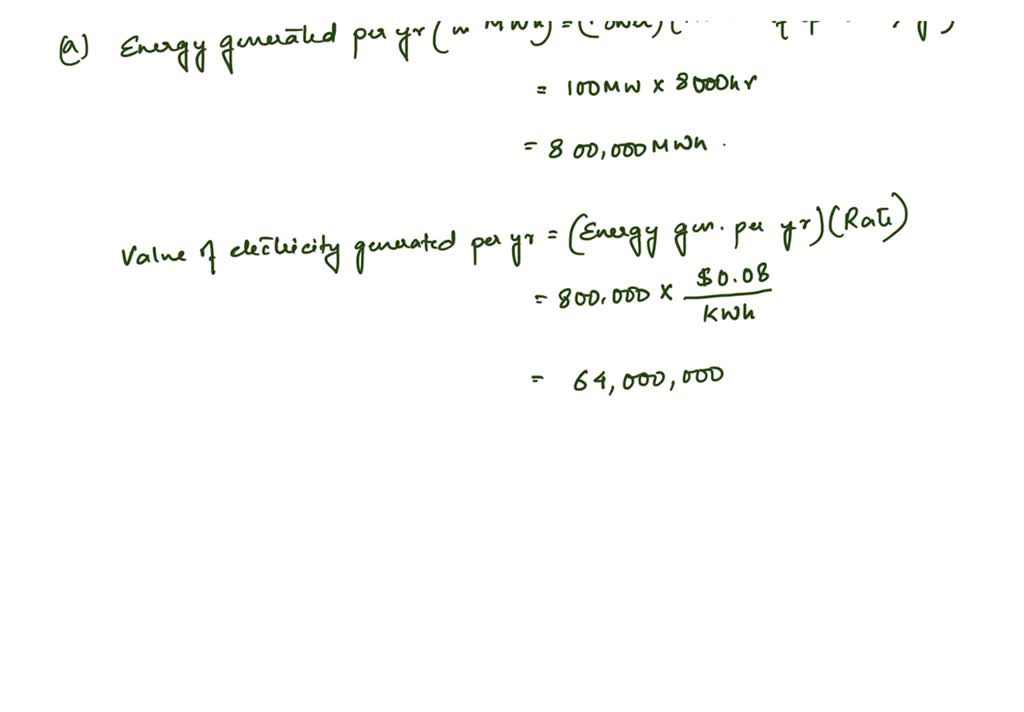 (a) Energy generated per yr (in MWh) = (Power)(
= 100MW x 8000hr
= 800,000 MWh.
Value of electricity generated per yr = (Energy gen. per yr)(Rate)
= 800,000 x $0.08
KWh
= 64,000,000